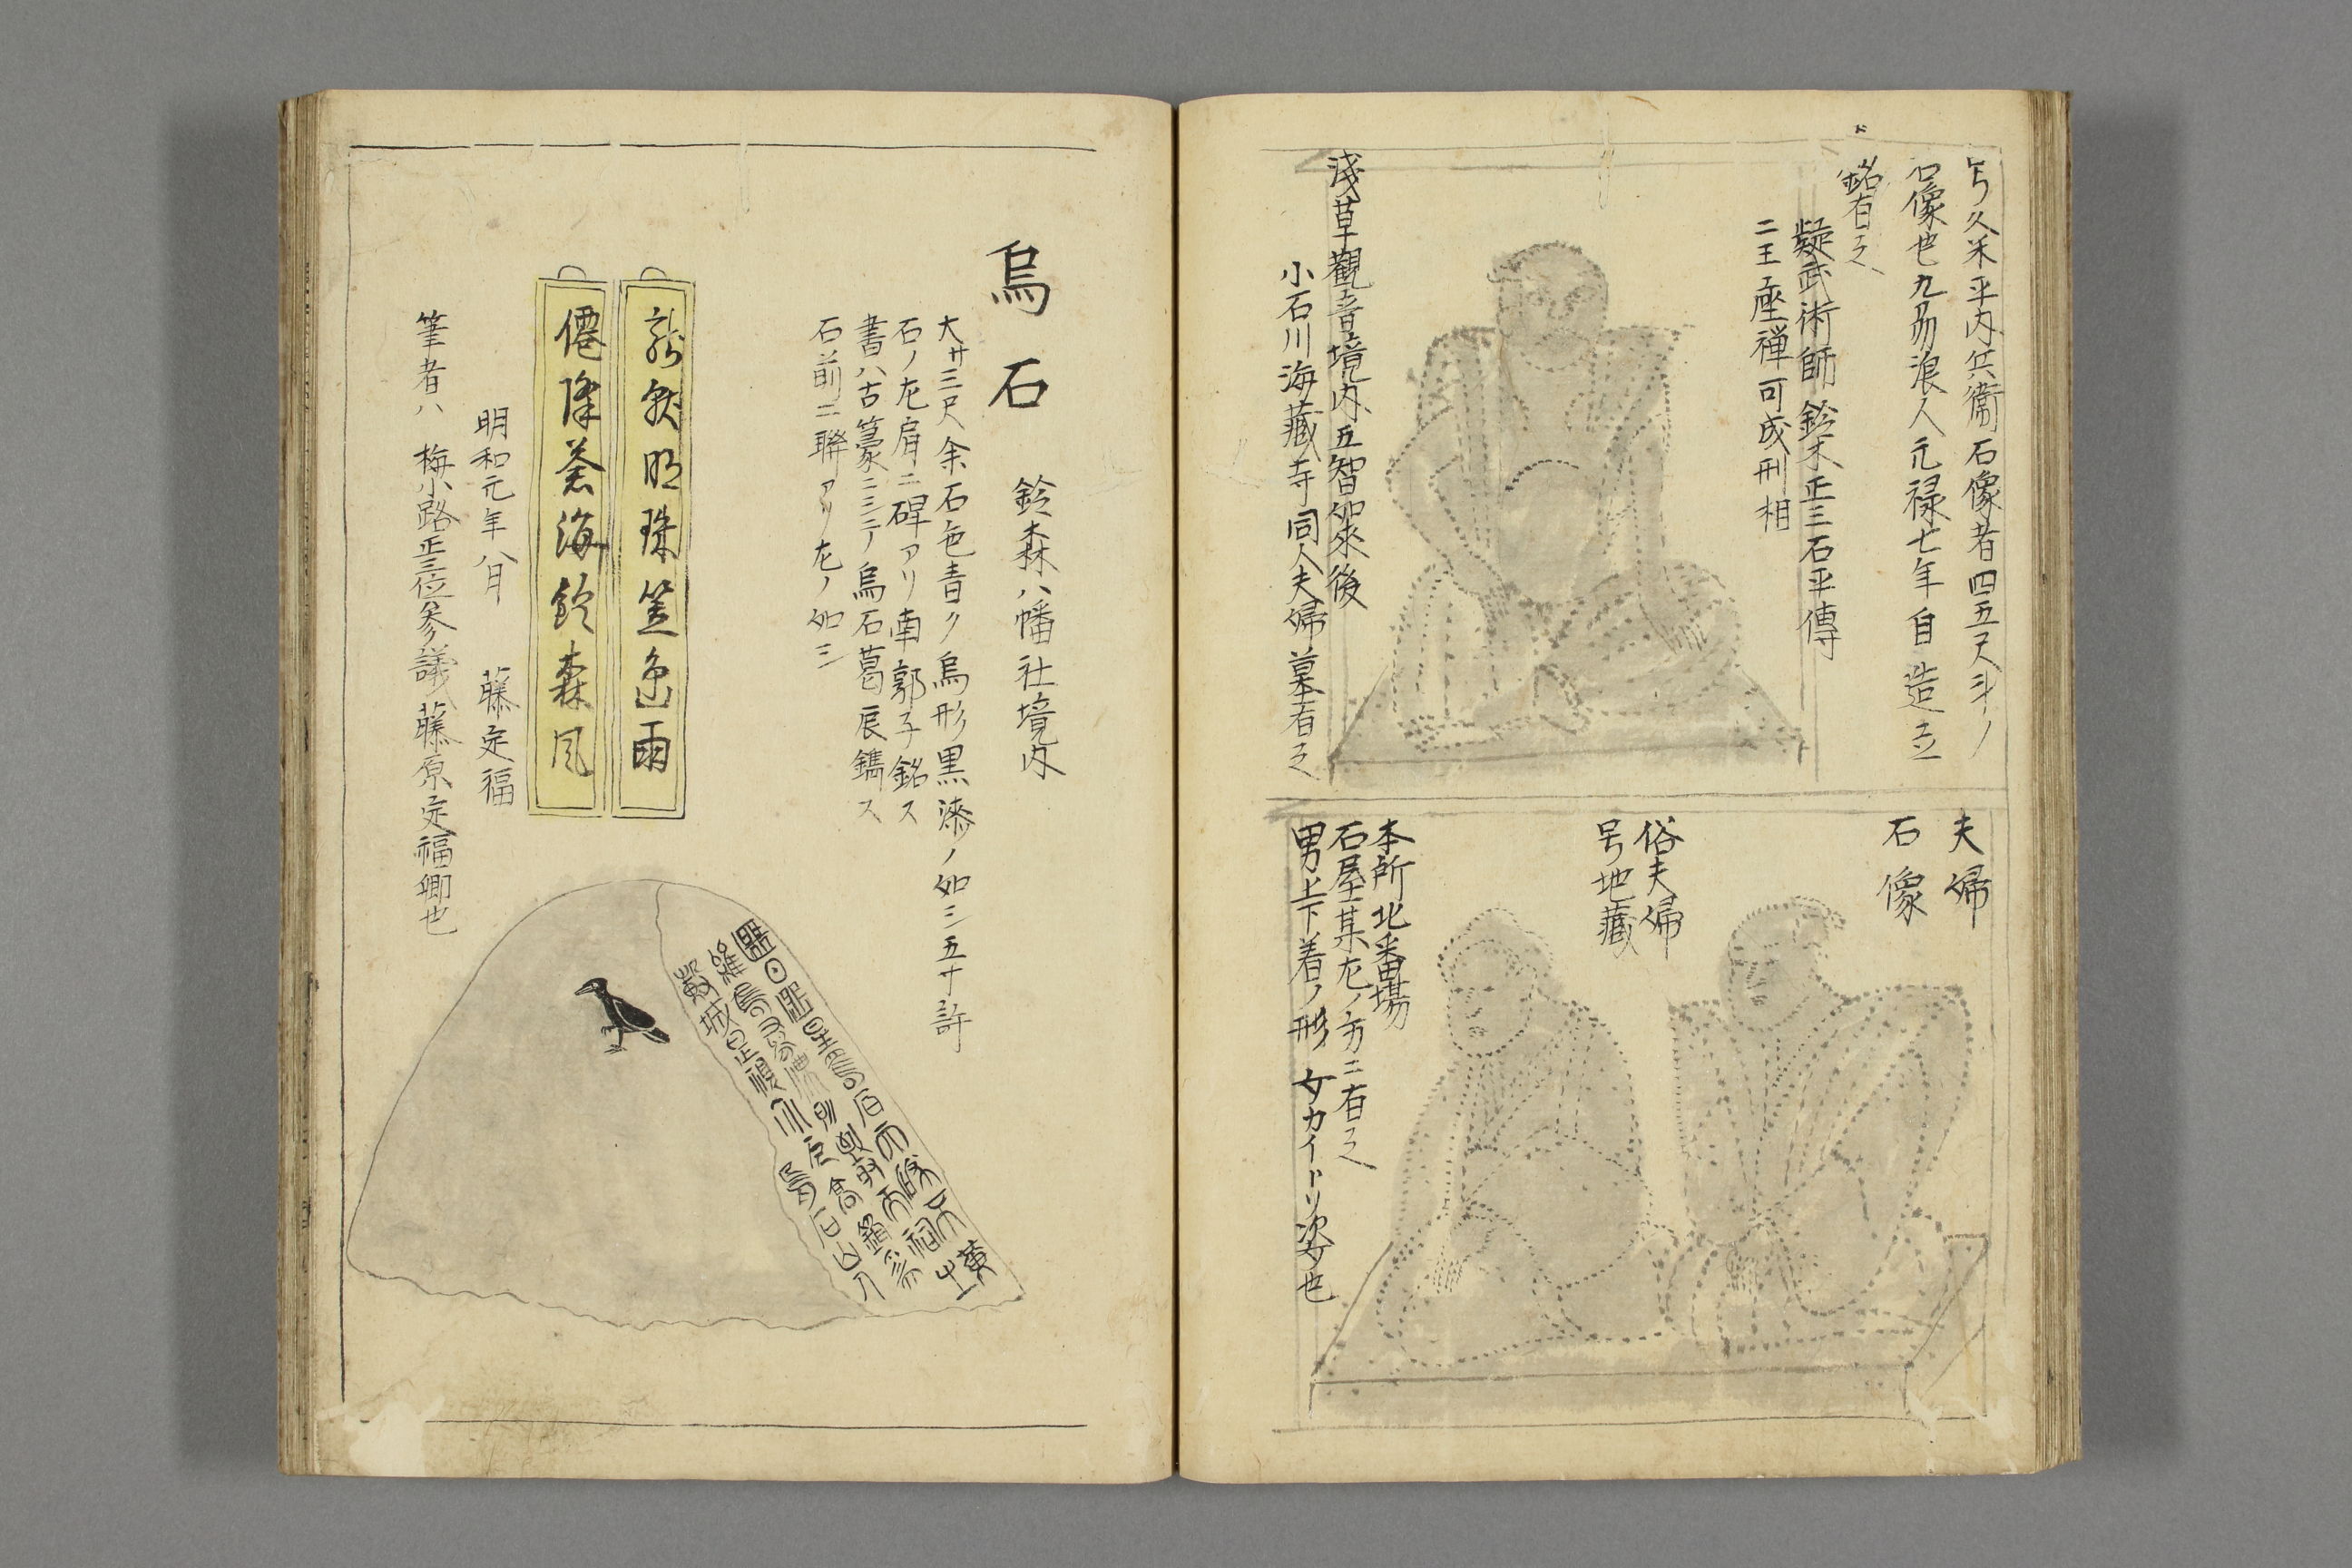 号久米平内兵衛石像者四五尺斗ノ
石像也九刕浪人元禄七年自造立
銘有之
疑武術師鈴木正三石平傳
二王座禅可成刑相
淺草觀音境内五智如來後
小石川海藏寺同人夫婦墓有之
夫婦
石像
俗夫婦
号地藏
本所北番場
石屋某左ノ方ニ有之
男上下着ノ形 女カイトリ姿也
烏石 鈴森八幡社境内
大サ三尺余石色青ク烏形黒漆ノ如シ五寸許
石ノ左肩ニ碑アリ南郭子銘ス
書ハ古篆ニシテ烏石葛辰鐫ス
石前ニ聯アリ左ノ如シ
明珠笠島雨
僊降蒼海鈴森風
明和元年八月 藤定福
筆者ハ 梅小路正三位參議藤原定福卿也